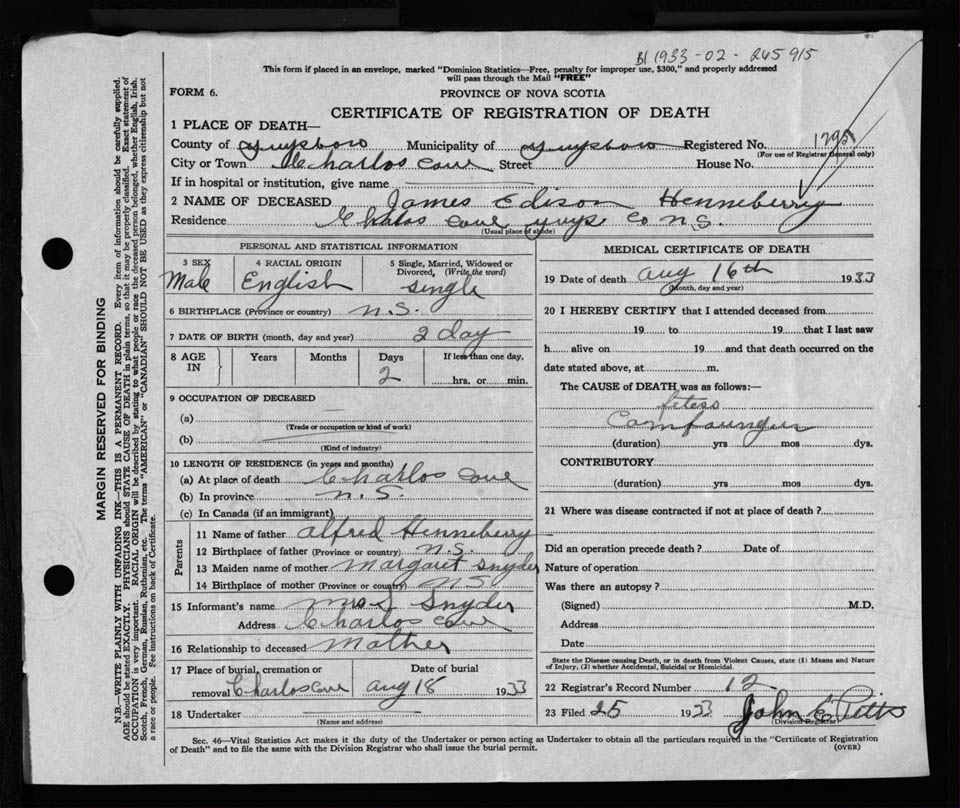 B 1933-02-265915
This form if placed in an envelope, marked "Dominion Statistics—Free, penalty for improper use, $300," and properly addressed
will pass through the Mail "FREE"
FORM 6.
PROVINCE OF NOVA SCOTIA
CERTIFICATE OF REGISTRATION OF DEATH
1 PLACE OF DEATH—
County of Guysboro Municipality of Guysboro Registered No. 1795
(For use of Registrar General only)
City or Town Charlos Cove Street House No.
If in hospital or institution, give name
2 NAME OF DECEASED James Edison Henneberry
Residence Chalos Cove Guys Co N.S.
(Usual place of abode)
PERSONAL AND STATISTICAL INFORMATION
3 SEX 4 RACIAL ORIGIN 5 Single, Married, Widowed or
Divorced, (Write the word)
Male English single
6 BIRTHPLACE (Province or country) N.S.
7 DATE OF BIRTH (month, day and year) 2 day
8 AGE IN Years Months Days If less than one day,
2 hrs. or min.
9 OCCUPATION OF DECEASED
(a)
(Trade or occupation or kind of work)
(b)
(Kind of industry)
10 LENGTH OF RESIDENCE (in years and months)
(a) At place of death Charlos Cove
(b) In province N.S.
(c) In Canada (if an immigrant)
Parents
11 Name of father Alfred Henneberry
12 Birthplace of father (Province or country) N.S.
13 Maiden name of mother Margaret Snyder
14 Birthplace of mother (Province or country) N.S.
15 Informant's name Mrs J Snyder
Address Charlos Cove
16 Relationship to deceased Mother
17 Place of burial, cremation or Date of burial
removal Charlos Cove Aug 18 1933
18 Undertaker
(Name and address)
MEDICAL CERTIFICATE OF DEATH
19 Date of death Aug 16th 1933
(Month, day and year)
20 I HEREBY CERTIFY that I attended deceased from
19 to 19 that I last saw
h alive on 19 and that death occurred on the
date stated above, at m.
The CAUSE of DEATH was as follows:—
(duration) yrs mos dys.
CONTRIBUTORY
(duration) yrs mos dys.
21 Where was disease contracted if not at place of death?
Did an operation precede death? Date of
Nature of operation
Was there an autopsy?
(Signed) M.D.
Address
Date
State the Disease causing Death, or in death from Violent Causes, state (1) Means and Nature
of Injury, (2) whether Accidental, Suicidal or Homicidal.
22 Registrar's Record Number 12
23 Filed 25 1933 John E
(Division Registrar)
Sec. 46—Vital Statistics Act makes it the duty of the Undertaker or person acting as Undertaker to obtain all the particulars required in the "Certificate of Registration
of Death" and to file the same with the Division Registrar who shall issue the burial permit.
(OVER)
MARGIN RESERVED FOR BINDING
N.B.—WRITE PLAINLY WITH UNFADING INK—THIS IS A PERMANENT RECORD. Every item of information should be carefully supplied.
AGE should be stated EXACTLY. PHYSICIANS should STATE CAUSE OF DEATH in plain terms, so that it may be properly classified. Exact statement of
OCCUPATION is very important. RACIAL ORIGIN will be described by stating to what people or race the deceased person belonged, whether English, Irish,
Scotch, French, German, Russian, Ruthenian, etc. The terms "AMERICAN" or "CANADIAN" SHOULD NOT BE USED as they express citizenship but not
a race or people. See instructions on back of Certificate.